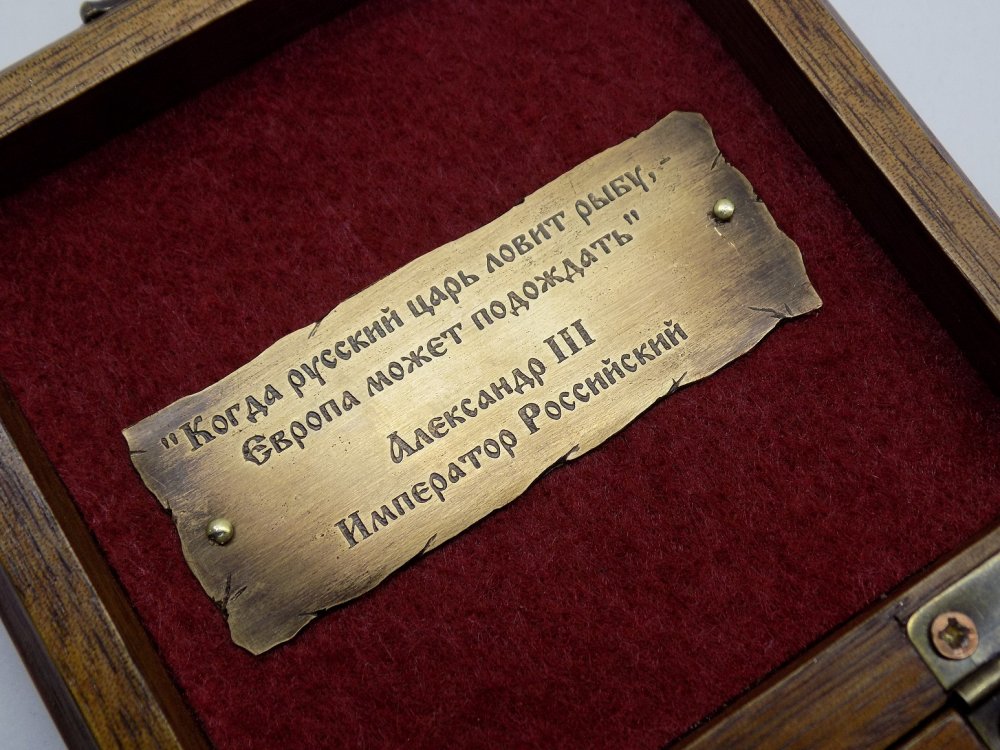 "Когда русский царь ловит рыбу,-
Европа может подождать"
Александр III
Император Российский